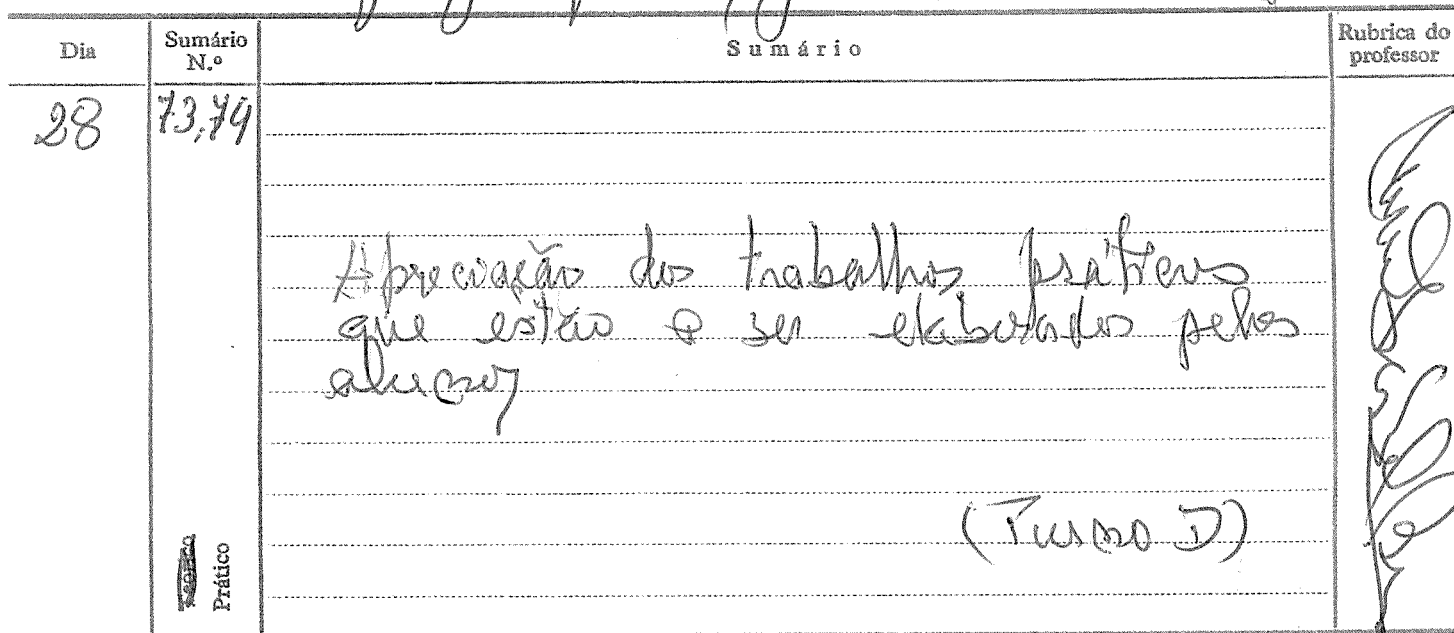 Dia
Sumário N.º
Sumário
Rubrica do professor
28
73,74
Apreciação dos trabalhos práticos
que estão a ser elaborados pelos
alunos
(Turno D)
Prático